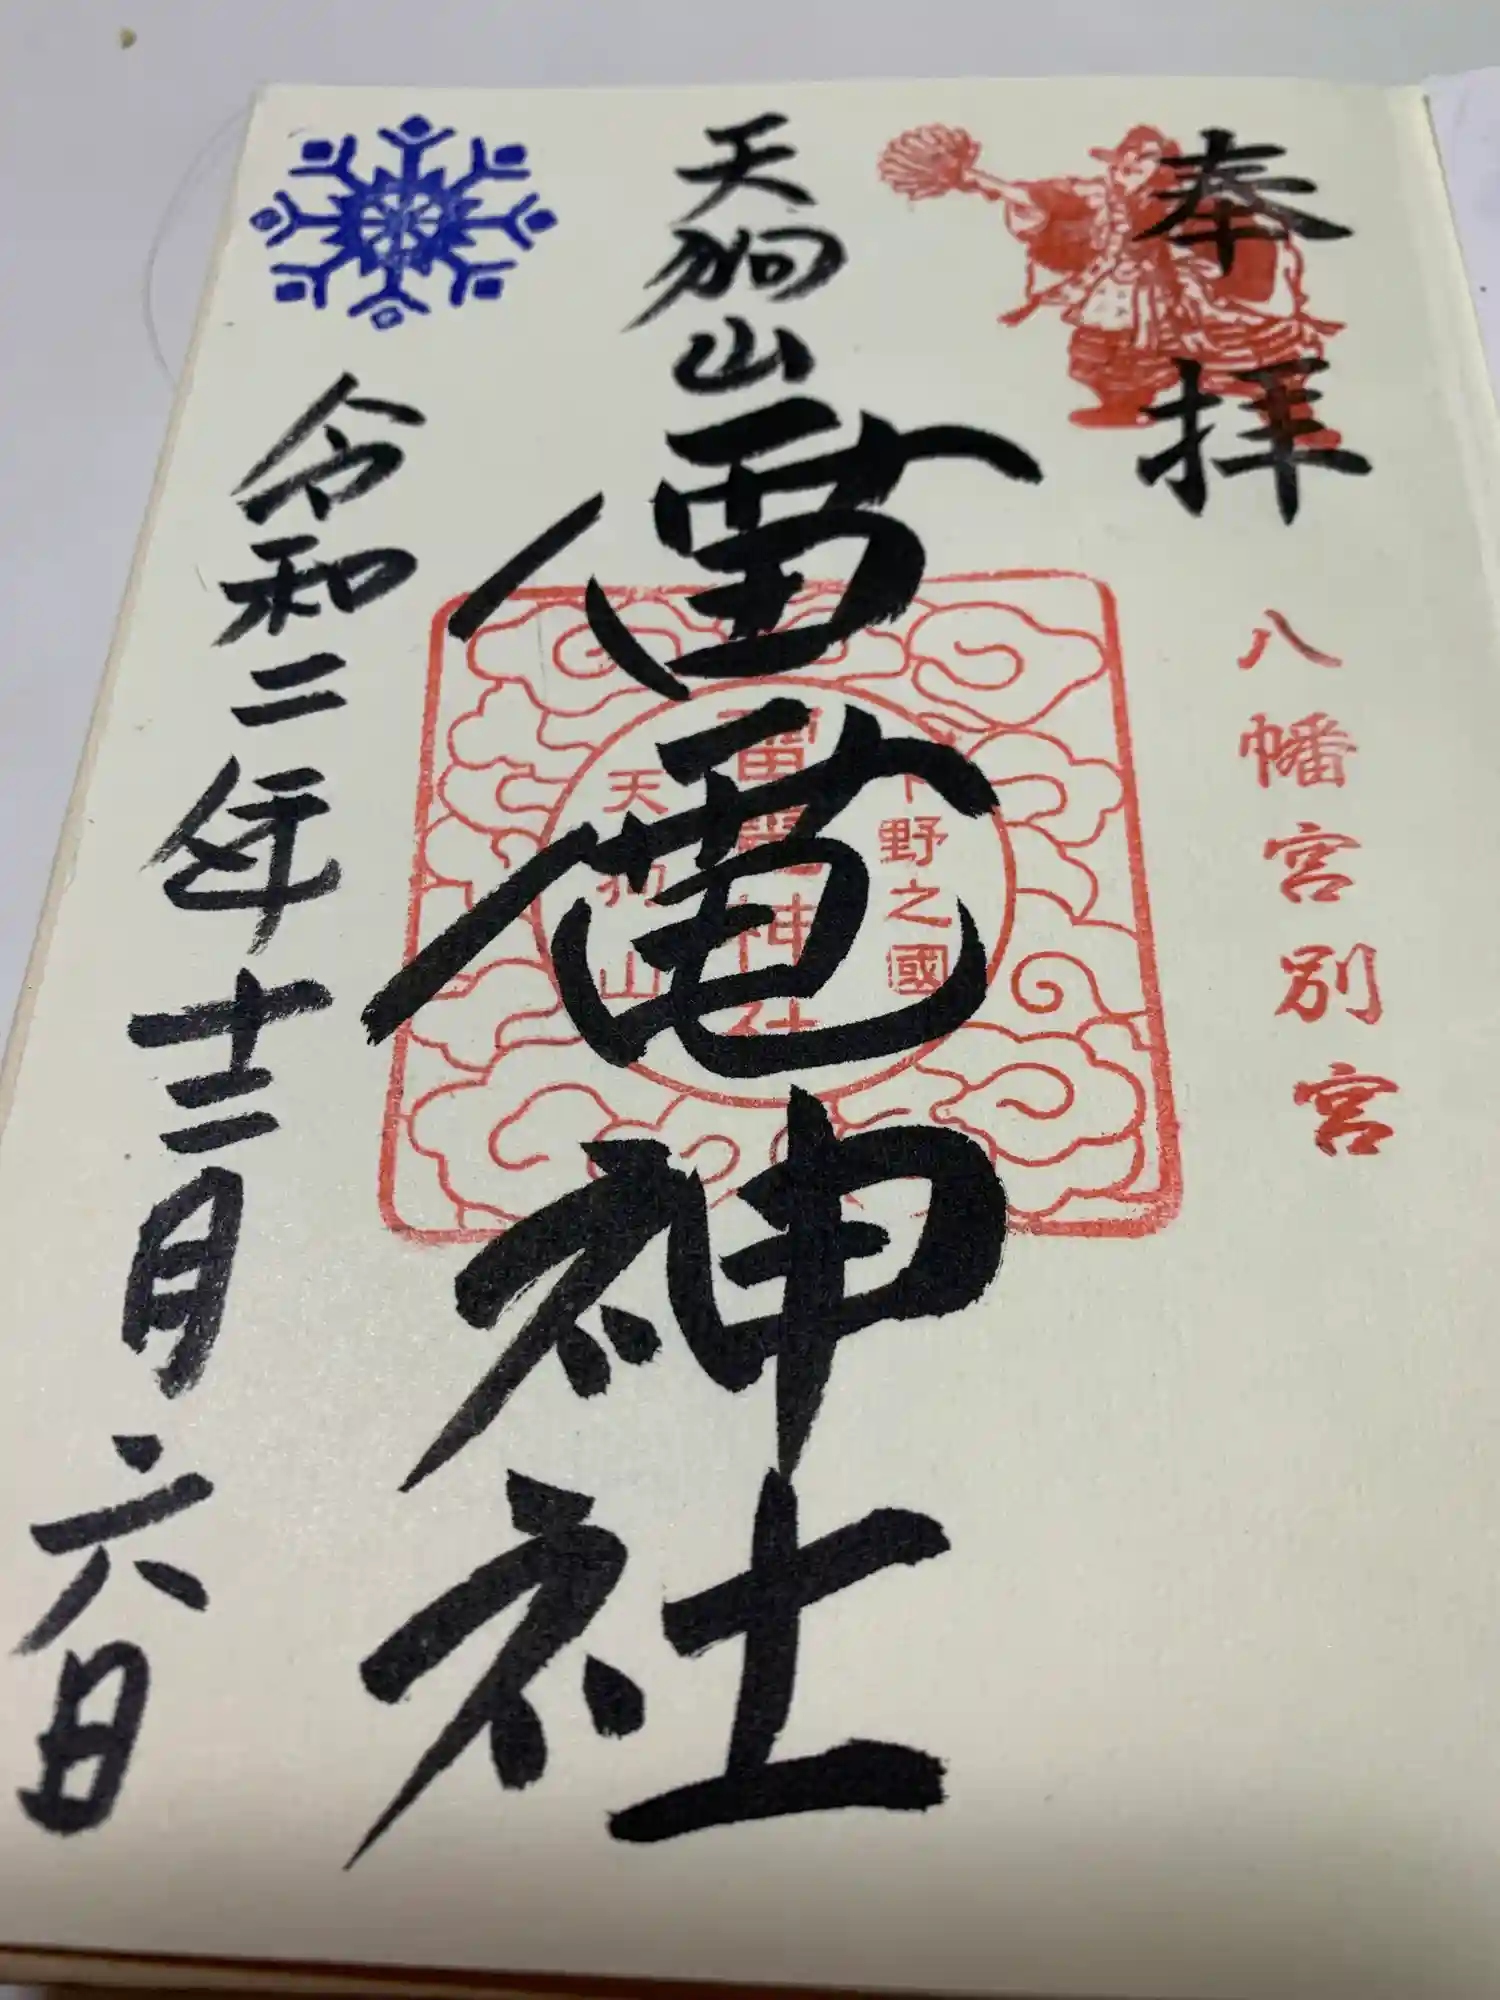 奉拝
八幡宮別宮
天狗山
雷電神社
下野之國
雷電神社
天狗山
令和二年十二月六日